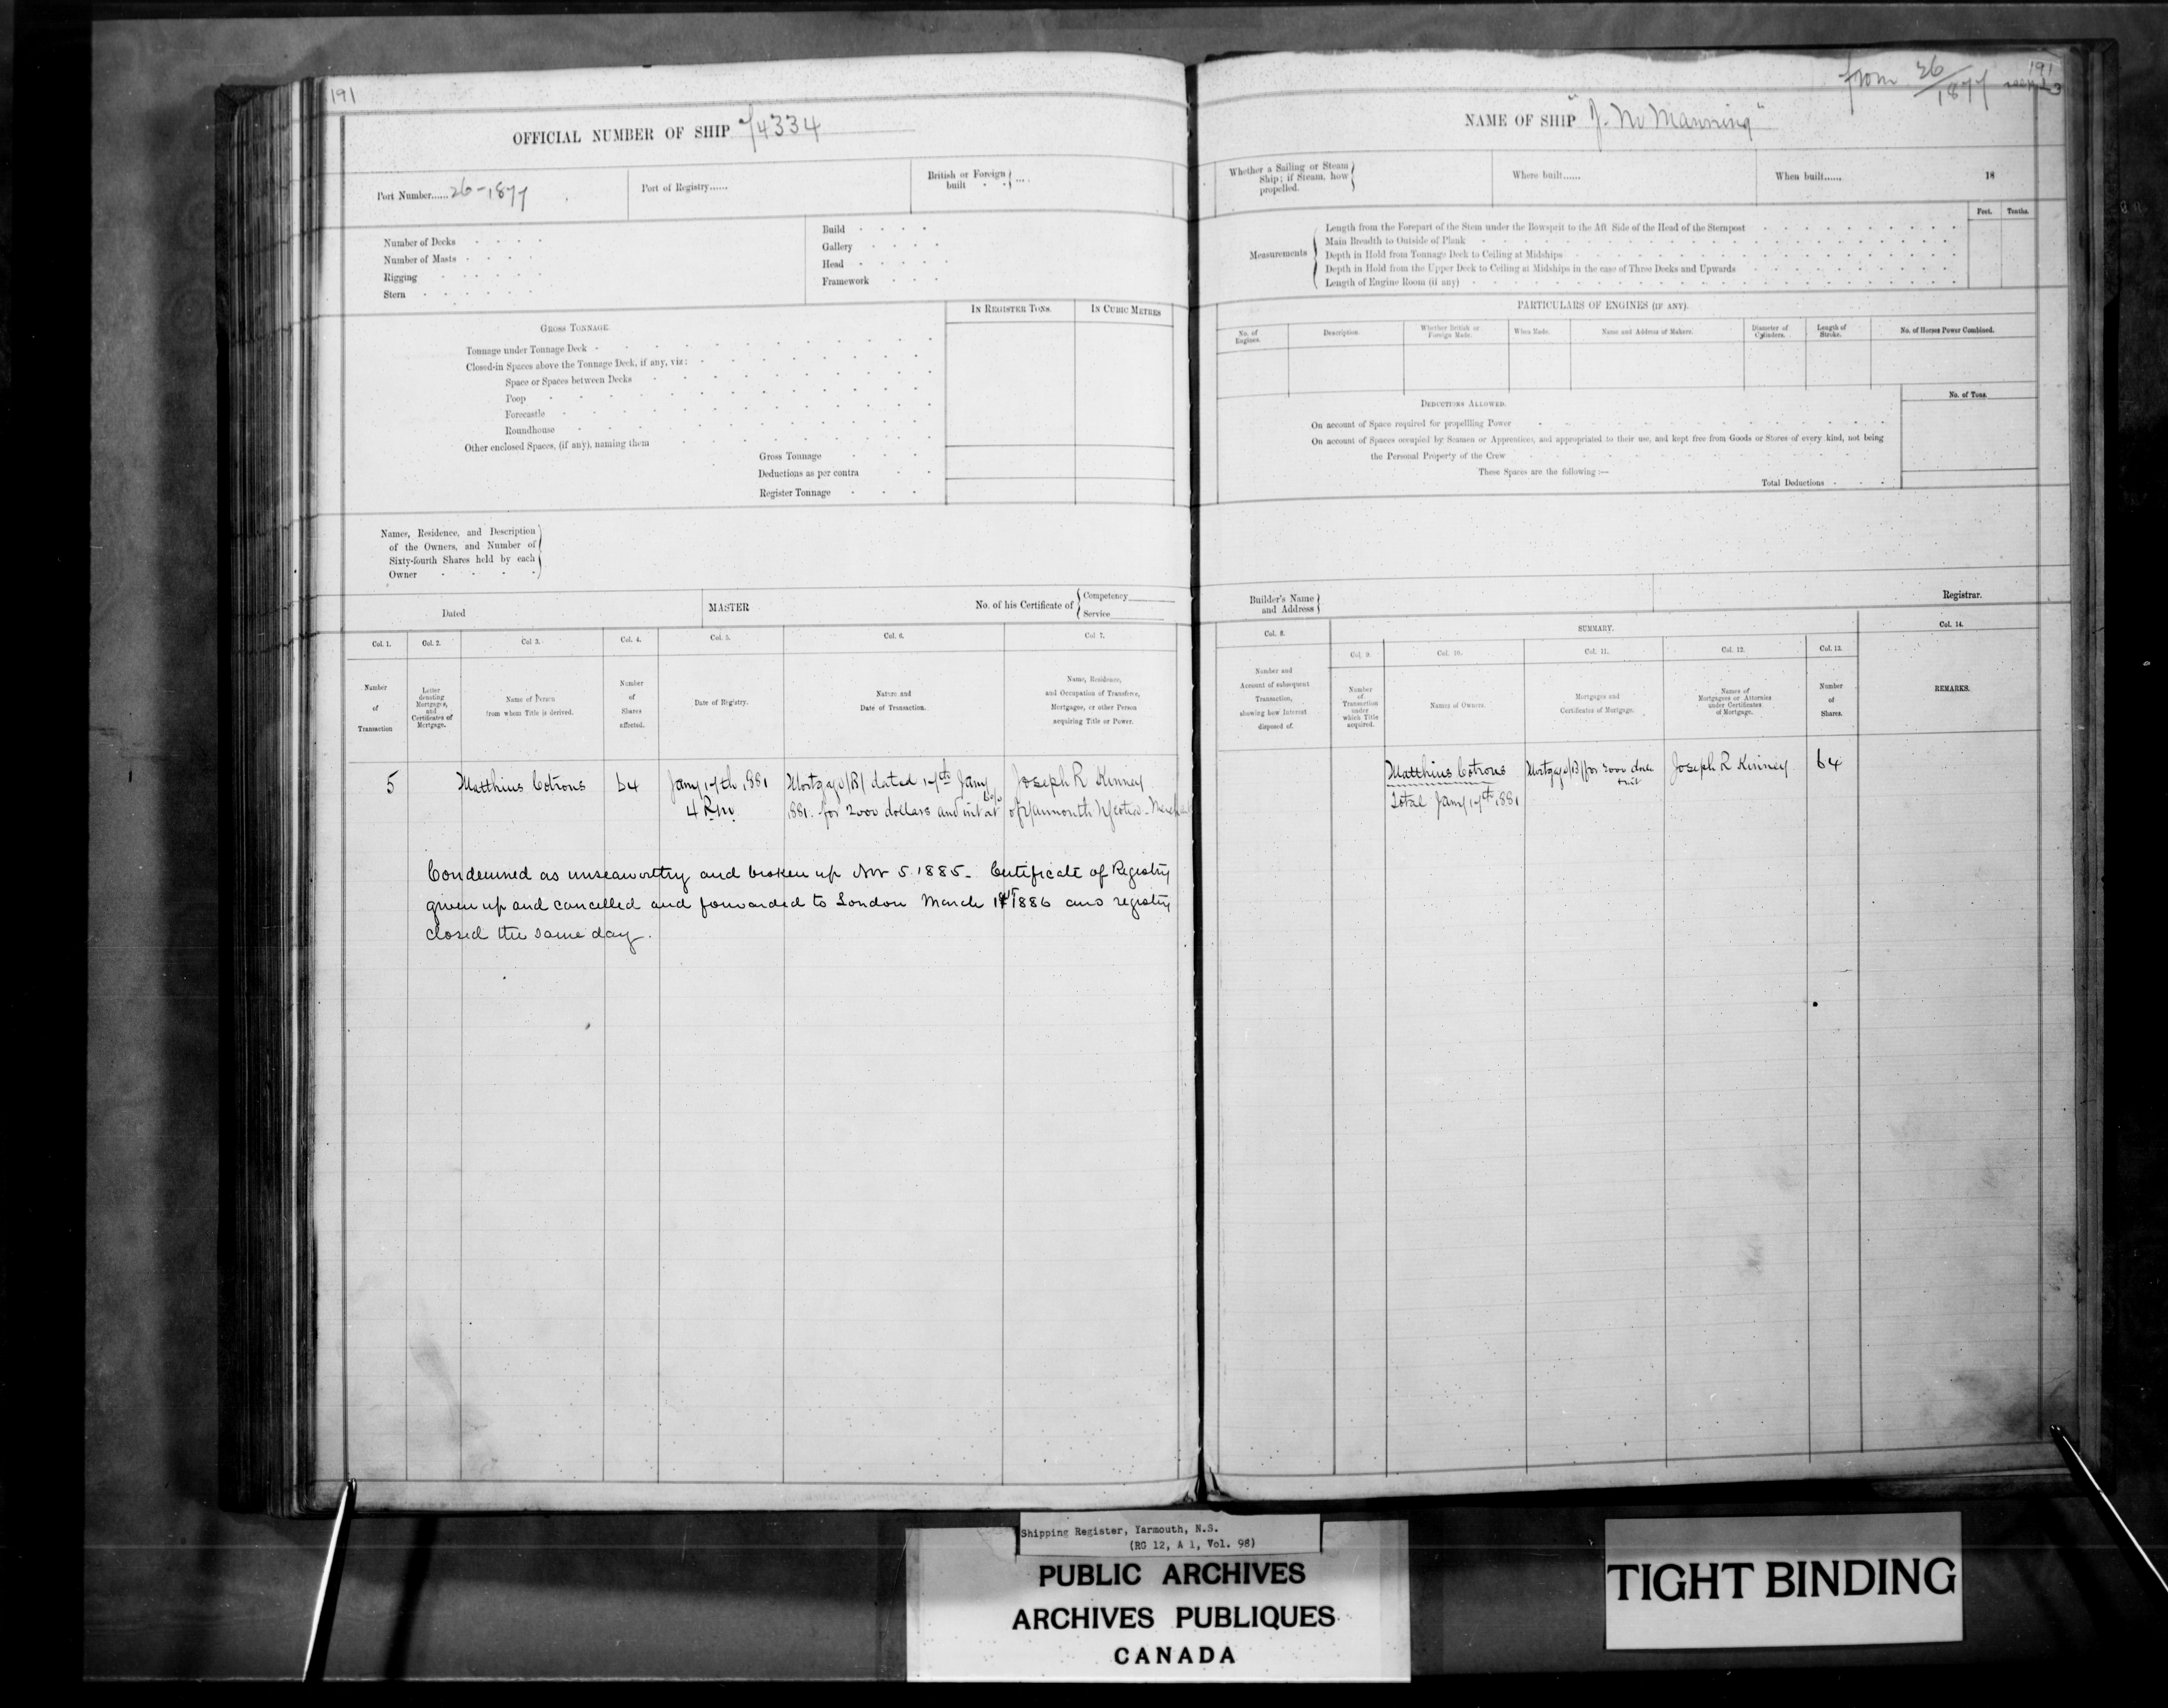 191
OFFICIAL NUMBER OF SHIP 74334
Port Number...... 26-1877
Port of Registry......
British or Foreign built
Number of Decks
Number of Masts
Rigging
Stern
Build
Gallery
Head
Framework
IN REGISTER TONS.
IN CUBIC METRES
GROSS TONNAGE.
Tonnage under Tonnage Deck
Closed-in Spaces above the Tonnage Deck, if any, viz:
Space or Spaces between Decks
Poop
Forecastle
Roundhouse
Other enclosed Spaces, (if any), naming them
Gross Tonnage
Deductions as per contra
Register Tonnage
Names, Residence, and Description
of the Owners, and Number of
Sixty-fourth Shares held by each
Owner
Dated
MASTER
No. of his Certificate of
Competency
Service
Col. 1.
Col. 2.
Col 3.
Col. 4.
Col. 5.
Col. 6.
Col 7.
Number
of
Transaction
Letter
denoting
Mortgages,
and
Certificates of
Mortgage.
Name of Person
from whom Title is derived.
Number
of
Shares
affected.
Date of Registry.
Nature and
Date of Transaction.
Name, Residence,
and Occupation of Transferee,
Mortgagee, or other Person
acquiring Title or Power.
5
Matthius
64
Jany 17th 1881
4 P.m.
Mortgage (B) dated 17th Jany
1881. for 2000 dollars and int at
Joseph R Kinney
of Yarmouth N Scotia - Merchant
Condemned as unseaworthy and broken up Nov 5. 1885. Certificate of Registry
given up and cancelled and forwarded to London March 1886 and registry
closed the same day.
from 26/1877
191
NAME OF SHIP "J. W Manning"
Whether a Sailing or Steam
Ship; if Steam, how
propelled.
Where built......
When built......
18
Feet.
Tenths.
Measurements
Length from the Forepart of the Stem under the Bowsprit to the Aft Side of the Head of the Sternpost
Main Breadth to Outside of Plank
Depth in Hold from Tonnage Deck to Ceiling at Midships
Depth in Hold from the Upper Deck to Ceiling at Midships in the case of Three Decks and Upwards
Length of Engine Room (if any)
PARTICULARS OF ENGINES (IF ANY).
No. of
Engines.
Description.
Whether British or
Foreign Made.
When Made.
Name and Address of Makers.
Diameter of
Cylinders.
Length of
Stroke.
No. of Horses Power Combined.
DEDUCTIONS ALLOWED.
No. of Tons.
On account of Space required for propellling Power
On account of Spaces occupied by Seamen or Apprentices, and appropriated to their use, and kept free from Goods or Stores of every kind, not being
the Personal Property of the Crew
These Spaces are the following:—
Total Deductions
Builder's Name
and Address
Registrar.
Col. 8.
SUMMARY.
Col. 14.
Col. 9.
Col. 10.
Col. 11.
Col. 12.
Col. 13.
Number and
Account of subsequent
Transaction,
showing how Interest
disposed of.
Number
of
Transaction
under
which Title
acquired.
Names of Owners.
Mortgages and
Certificates of Mortgage.
Names of
Mortgagees or Attornies
under Certificates
of Mortgage.
Number
of
Shares.
REMARKS.
Matthius
Total Jany 17th 1881
Mortgage (B) for 2000 dols
+ int
Joseph R Kinney
64
Shipping Register, Yarmouth, N.S.
(RG 12, A 1, Vol. 98)
PUBLIC ARCHIVES
ARCHIVES PUBLIQUES
CANADA
TIGHT BINDING